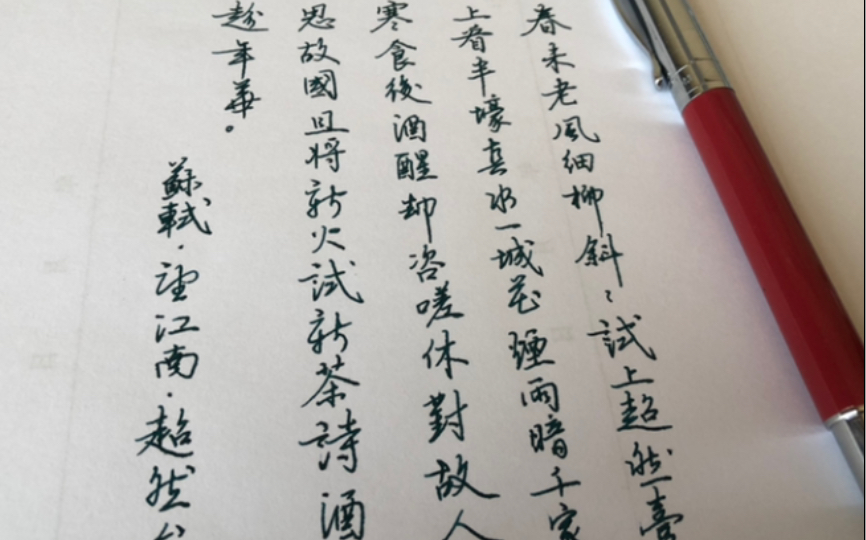 春未老風細柳斜〻試上超然臺
上看半壕春水一城花煙雨暗千家
寒食後酒醒却咨嗟休對故人
思故國且将新火試新茶詩酒
趁年華。
蘇軾·望江南·超然台